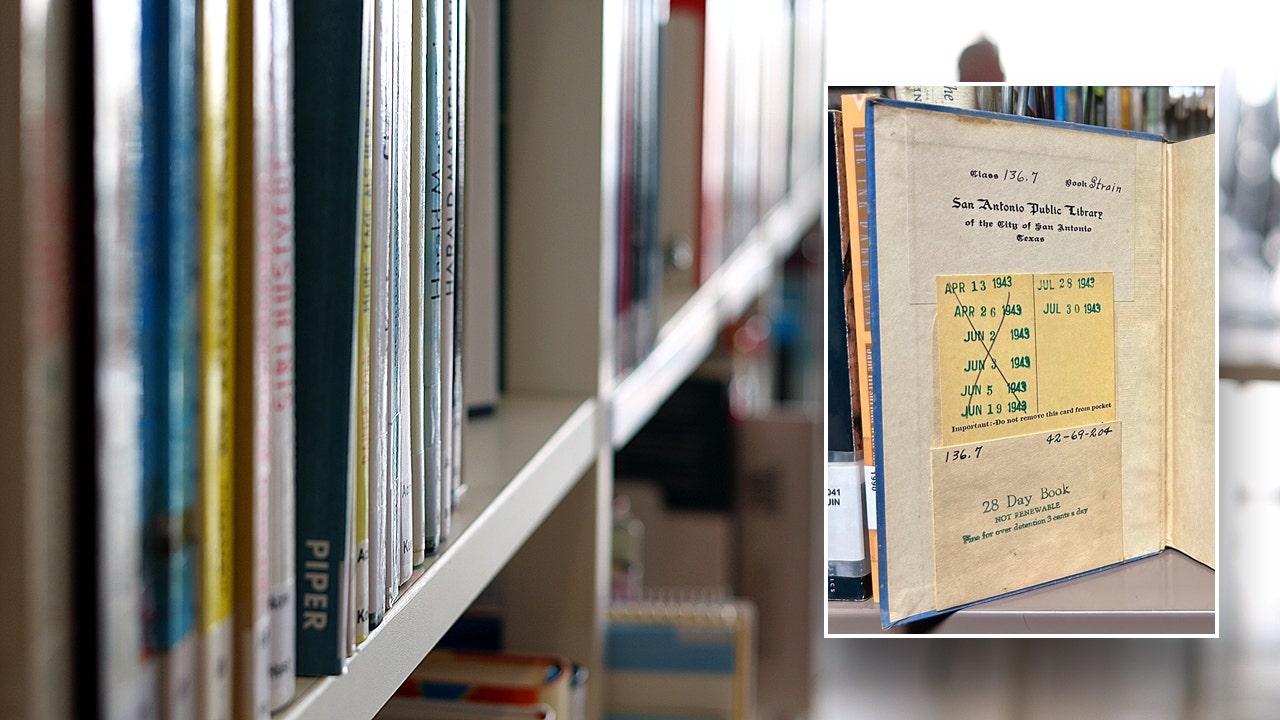 PIPER
HARALD MART
Class 136.7 Book Strain
San Antonio Public Library
of the City of San Antonio
Texas
APR 13 1943
APR 26 1943
JUN 2 1943
JUN 3 1943
JUN 5 1943
JUN 19 1943
JUL 28 1943
JUL 30 1943
Important:-Do not remove this card from pocket
136.7
42-69-204
28 Day Book
NOT RENEWABLE
Fine for over detention 3 cents a day
041
JIN
1990
The